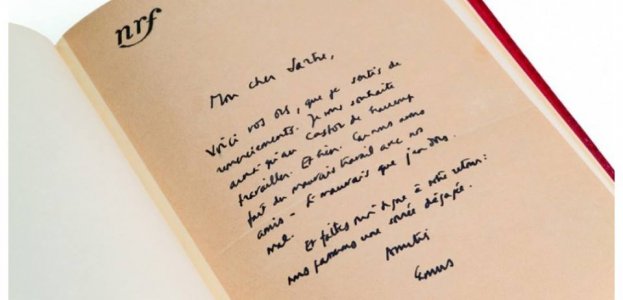 nrf
Mon cher Sartre,
Voici vos que je de
Je vous souhaite
ainsi qu'au Castor de beaucoup
travailler. Et bien. Car nous avons
fait du mauvais travail avec nos
amis - si mauvais que j'en dors
mal.
Et faites-moi signe à votre retour :
nous passerons une soirée dégagée.
Amitiés
Camus